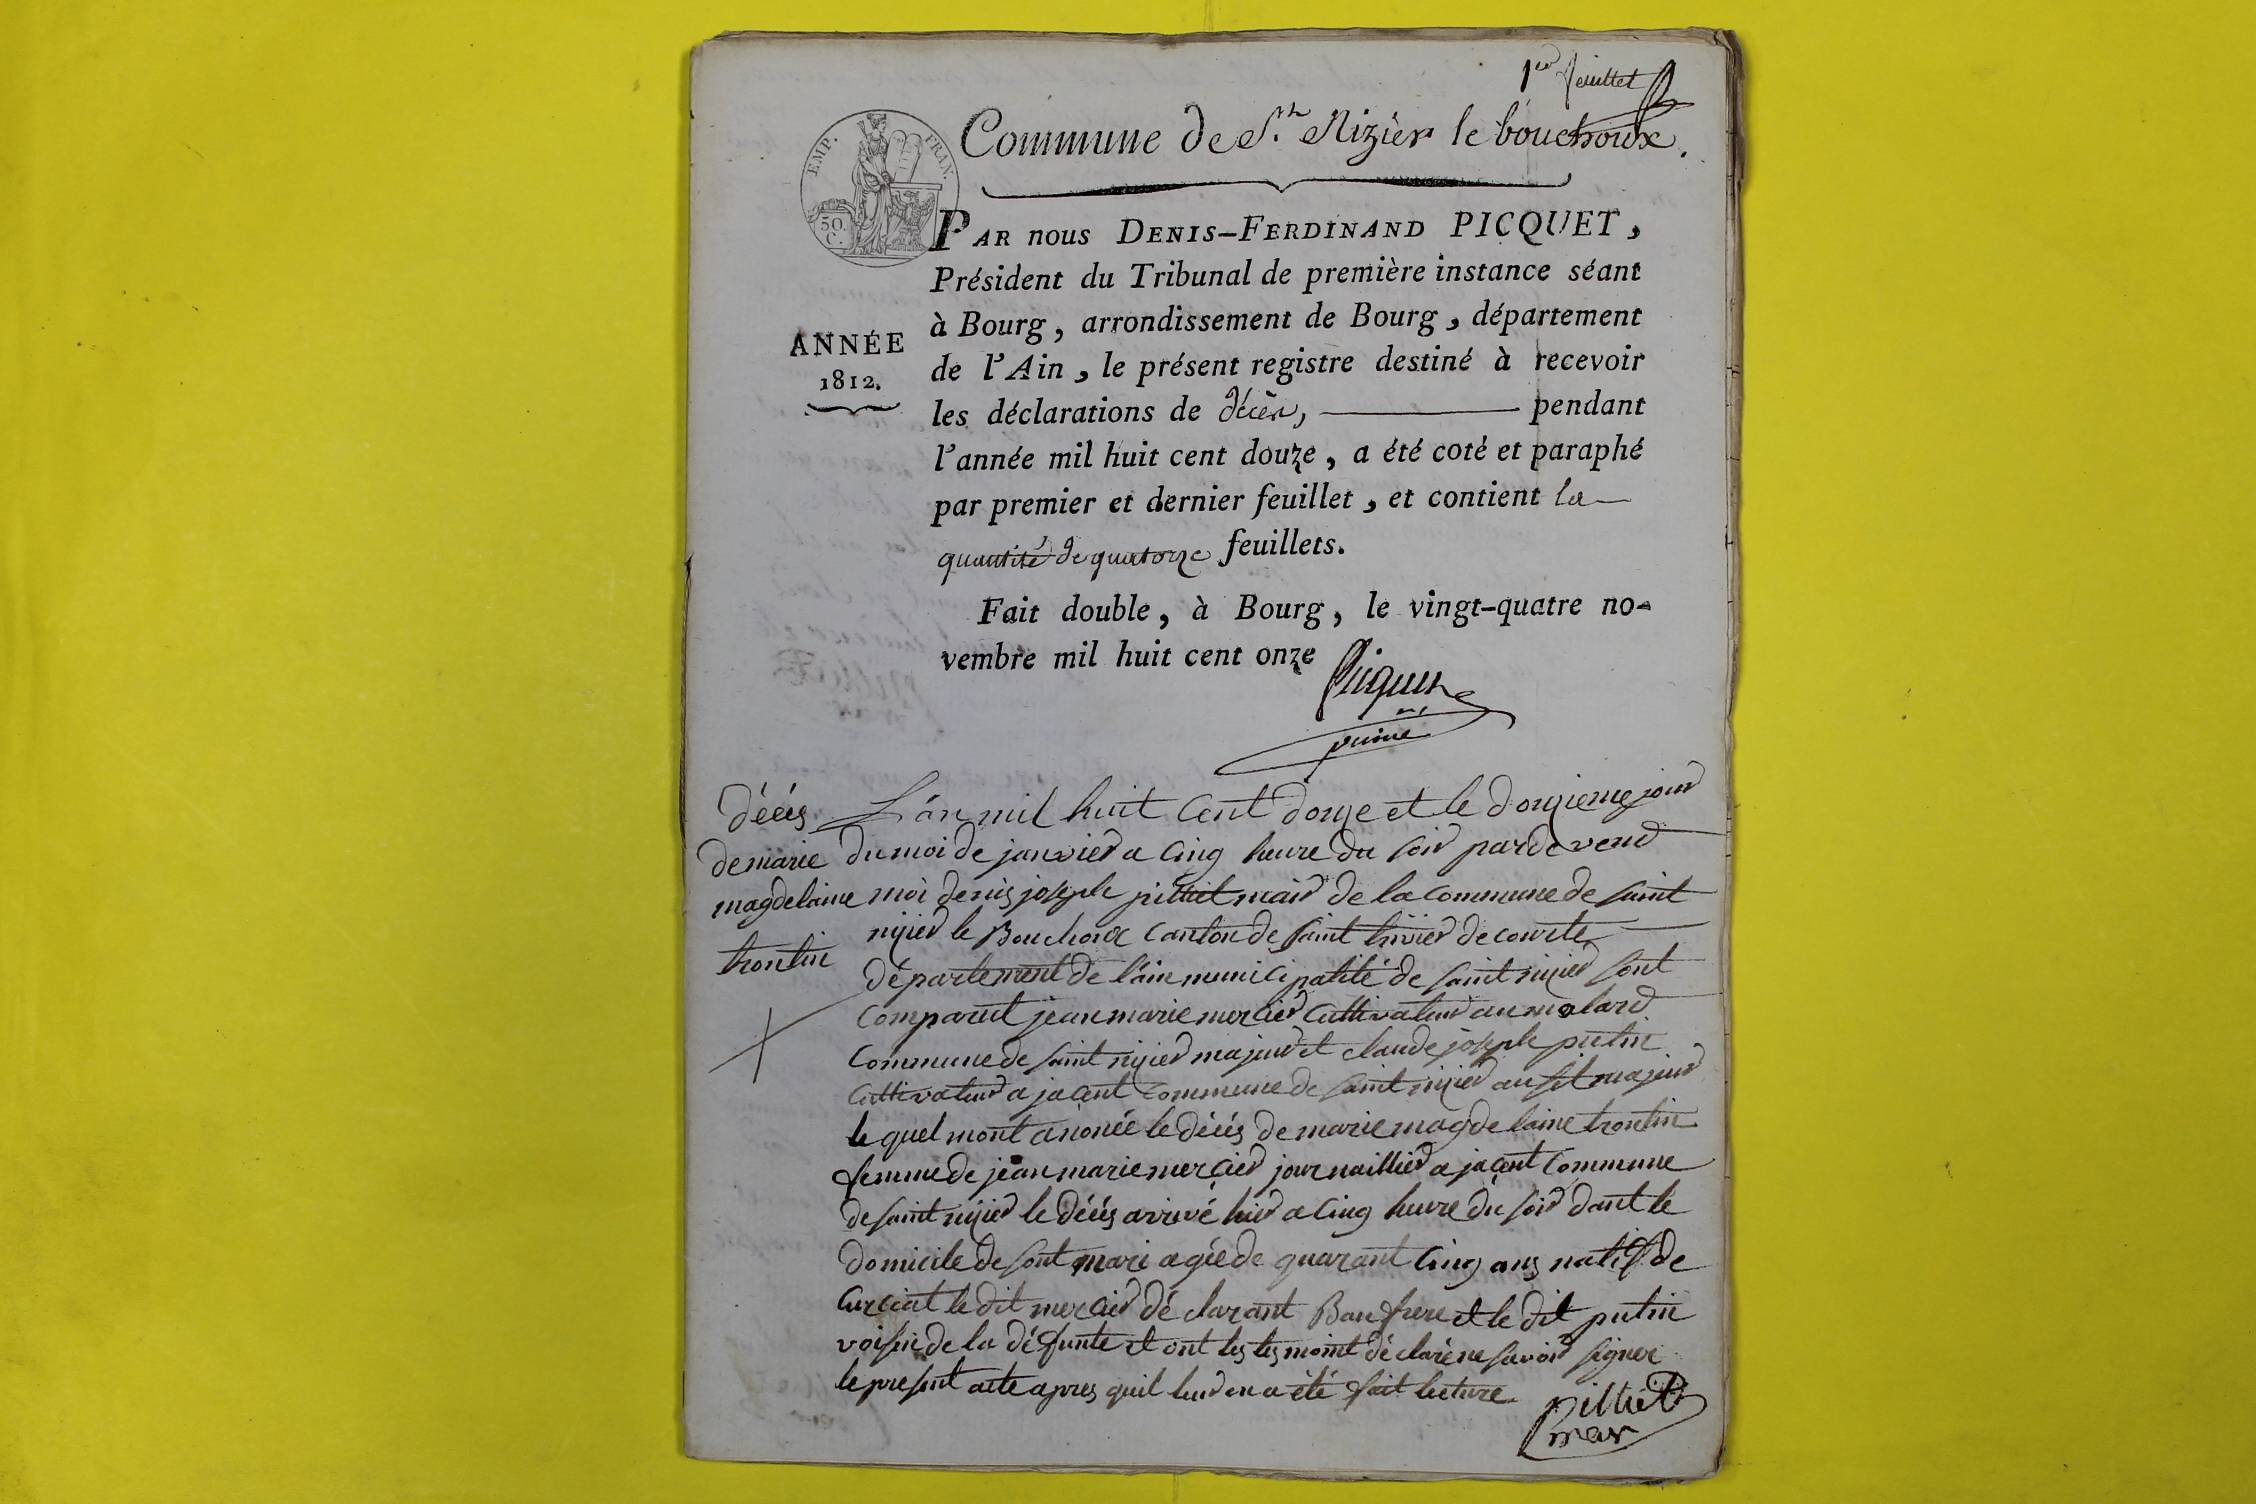 1er feuillet
Commune de St. Nizier le bouchoux.
EMP. FRAN.
50.
C.
PAR nous DENIS-FERDINAND PICQUET,
Président du Tribunal de première instance séant
à Bourg, arrondissement de Bourg, département
de l'Ain, le présent registre destiné à recevoir
les déclarations de décès, pendant
l'année mil huit cent douze, a été coté et paraphé
par premier et dernier feuillet, et contient la
quantité de quatorze feuillets.
Fait double, à Bourg, le vingt-quatre no-
vembre mil huit cent onze
ANNÉE
1812.
Picquet
décés
de marie
magdelaine
trontin
L'án mil huit Cent douze et le douzieme jour
du moi de janvier a Cinq heure du soir pardevend
moi denis joseph pilliet mair de la commune de saint
nizier le Bouchoux Canton de saint trivier de courte
département de l'áin municipalité de saint nizier sont
Comparut jean marie mercier Cultivateur au molard
Commune de saint nizier majeur et claude joseph putin
Cultivateur a jacent Commune de saint nizier ausit majeur
le quel mont anonée le décés de marie magdelaine trontin
femme de jean marie mercier journaillier a jacent Commune
de saint nizier le décés arrivé hier a Cinq heure du soir dant le
domicile de sont mari agée de quarant Cinq ans natif de
Curciat le dit mercier déclarant Baufrere et le dit putin
voisin de la défunte et ont les tesmoint déclaré ne savoir signer
le present acte apres quil leur en a été fait lecture
pilliet
mair